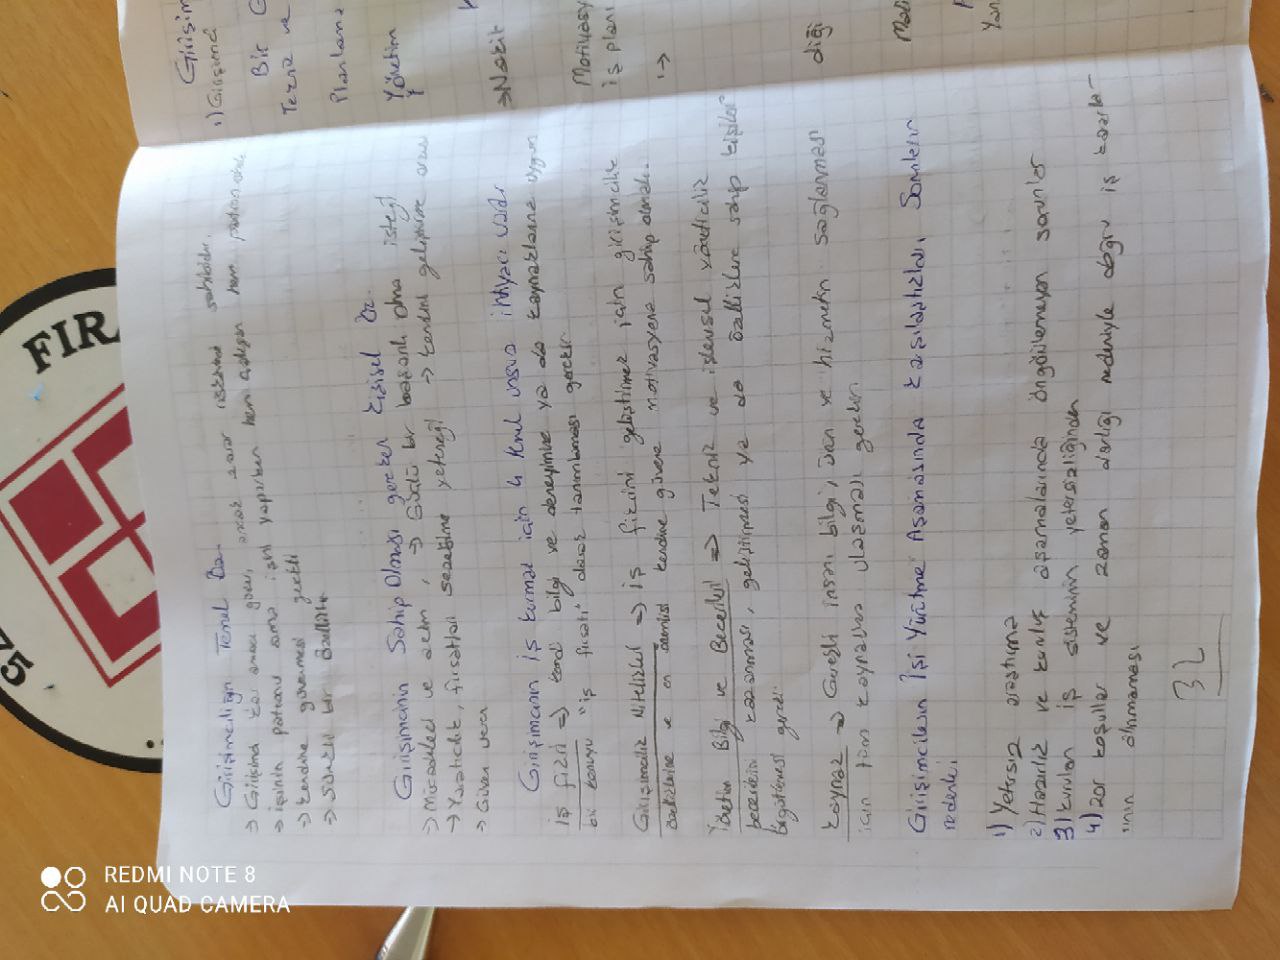 75
FIR
REDMI NOTE 8
AI QUAD CAMERA
Girişimciliğin Temel Öz.
→ Girişimci kar amacı güder, ancak zarar riskine sahibidir.
→ işinin patronu ama işini yaparken hem çalışan hem patron
→ kendine güvenmesi gerekli
→ Sürekli bir özellik
Girişimcinin Sahip Olması gereken kişisel Öz.
→ Mücadeleci ve azim, → Güçlü bir başarılı olma isteği
→ Yaratıcılık, fırsatları sezebilme yeteneği → kendini geliştirme arzusu
→ Güven veren
Girişimcinin iş kurmak için 4 temel unsura ihtiyacı vardır
iş fikri ⇒ kendi bilgi ve deneyimine ya da kaynaklarına uygun
bir konuyu "iş fırsatı" olarak tanımlaması gerekir
Girişimcilik Nitelikleri ⇒ iş fikrini geliştirmek için girişimcilik
özelliklerine ve en önemlisi kendine güvene motivasyona sahip olmalı.
Yönetim Bilgi ve Becerileri ⇒ Teknik ve işlevsel yöneticilik
becerilerin kazanması, geliştirmesi ya da özelliklere sahip kişileri
örgütlemesi gerekir
kaynak → Gerekli insan, bilgi, ürün ve hizmetin sağlanması
için tüm kaynaklara ulaşması gerekir
Girişimcilerin İşi Yürütme Aşamasında karşılaştıkları Sorunların
nedenleri
1) Yetersiz araştırma
2) Hazırlık ve kuruluş aşamalarında öngörülemeyen sorunlar
3) kurulan iş sisteminin yetersizliğinden
4) zor koşullar ve zaman darlığı nedeniyle doğru iş kararla-
rının alınmaması
32
Girişim
1) Girişimci
Bir G
Teknik ve
Planlama
Yönetim
→ Nakit
Motivasy
iş planı
diği